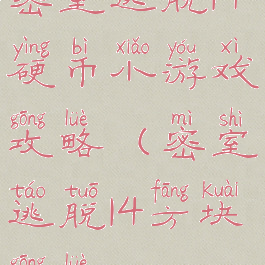 密室逃脱14
yìng bì xiǎo yóu xì
硬币小游戏
gōng lüè mì shì
攻略（密室
táo tuō fāng kuài
逃脱14方块
gōng lüè